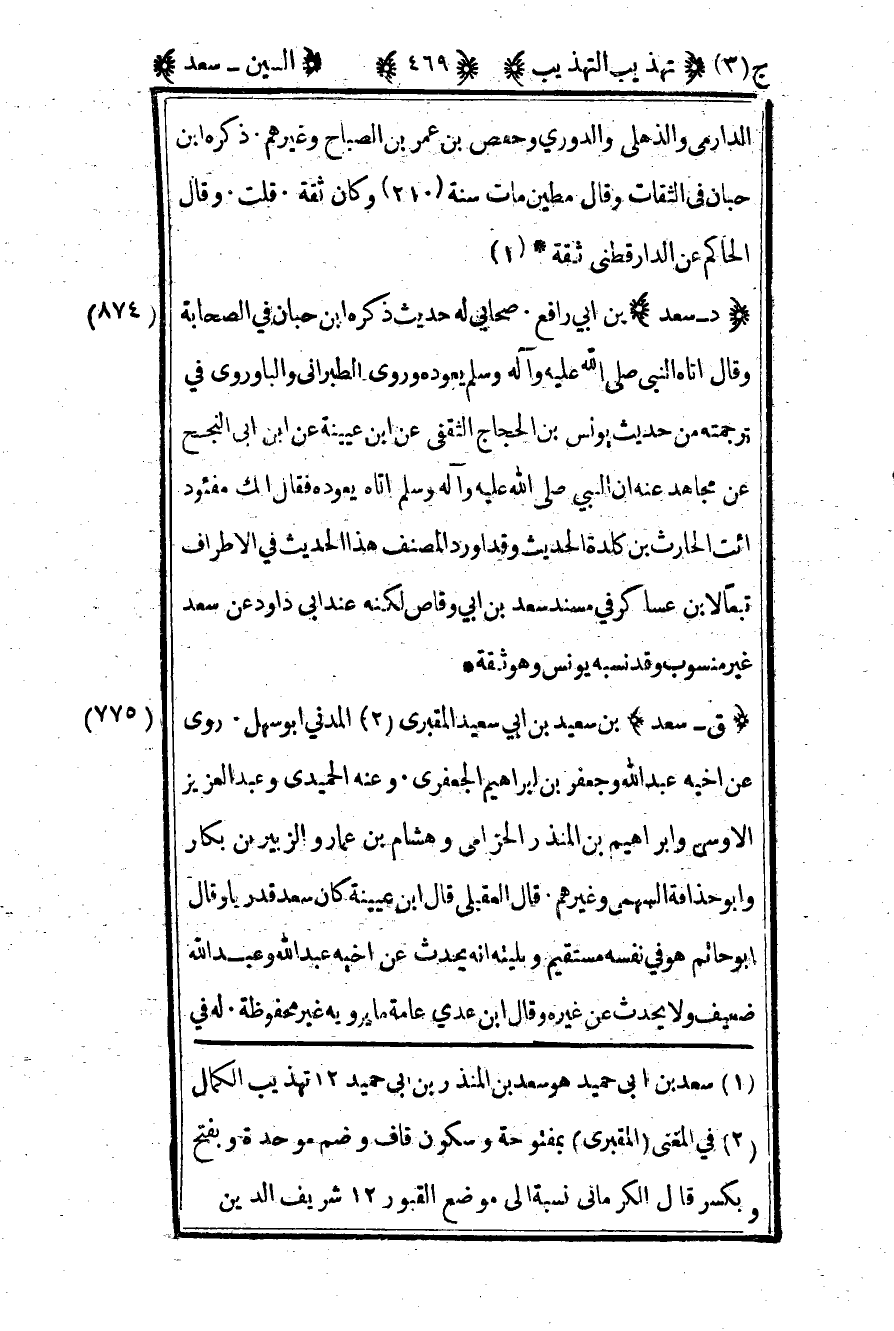 ج (٣) ﴿ تهذيب التهذيب ﴾ ﴿ ٤٦٩ ﴾ ﴿ السين - سعد ﴾
الدارمى والذهلى والدوري وحفص بن عمر بن الصباح وغيرهم · ذكره ابن
حبان فى الثقات وقال مطين مات سنة (٢١٠) وكان ثقة · قلت · وقال
الحاكم عن الدار قطنى ثقة * (١)
﴿ د - سعد ﴾ بن ابي رافع · صحابي له حديث ذكره ابن حبان في الصحابة (٨٧٤)
وقال اتاه النبى صلى الله عليه وآله وسلم يعوده وروى الطبرانى والباوروى في
ترجمته من حديث يونس بن الحجاج الثقفى عن ابن عيينة عن ابن ابى النجيح
عن مجاهد عنه ان النبي صلى الله عليه وآله وسلم اتاه يعوده فقال انك مفئود
ائت الحارث بن كلدة الحديث وقد اورد المصنف هذا الحديث في الاطراف
تبعاً لابن عساكر في مسند سعد بن ابي وقاص لكنه عند ابى داود عن سعد
غير منسوب وقد نسبه يونس وهو ثقة *
﴿ ق - سعد ﴾ بن سعيد بن ابي سعيد المقبرى (٢) المدني ابو سهل · روى (٧٧٥)
عن اخيه عبدالله وجعفر بن ابراهيم الجعفرى · وعنه الحميدى وعبد العزيز
الاوسى وابراهيم بن المنذر الحزامى وهشام بن عمار والزبير بن بكار
وابو حذافة السهمى وغيرهم · قال العقيلى قال ابن عيينة كان سعد قدريا وقال
ابو حاتم هو في نفسه مستقيم وبليته انه يحدث عن اخيه عبدالله وعبدالله
ضعيف ولا يحدث عن غيره وقال ابن عدي عامة ما يرويه غير محفوظة · له في
(١) سعد بن ابى حميد هو سعد بن المنذر بن ابى حميد ١٢ تهذيب الكمال
(٢) في المغنى (المقبرى) بمفتوحة وسكون قاف وضم موحدة وبفتح
وبكسر قال الكرمانى نسبة الى موضع القبور ١٢ شريف الدين